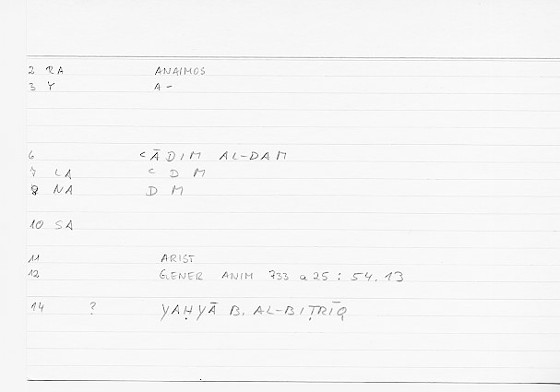 2 RA ANAIMOS
3 Y A-
6 ʿĀDIM AL-DAM
7 LA ʿ D M
8 NA D M
10 SA
11 ARIST
12 GENER ANIM 733 a 25 : 54.13
14 ? YAḤYĀ B. AL-BIṬRĪQ